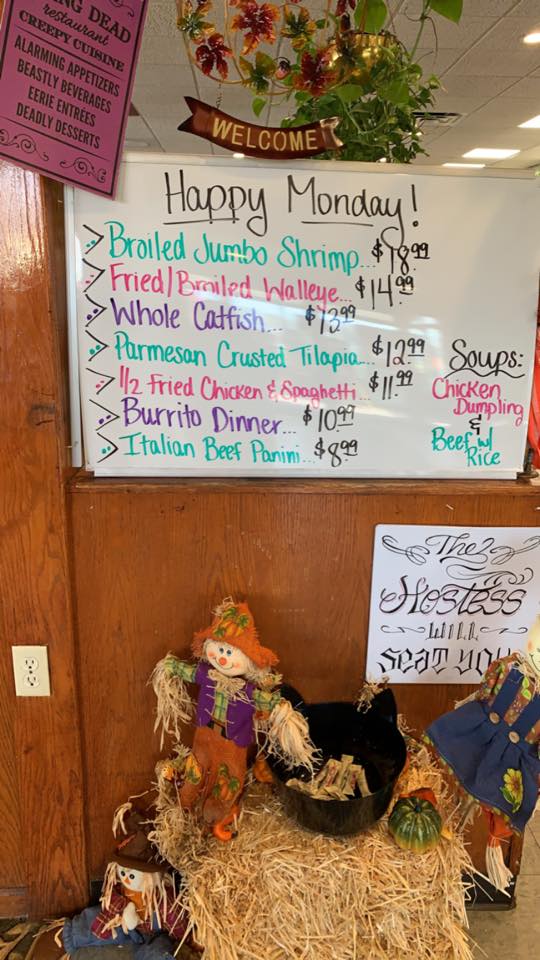 ING DEAD
restaurant
CREEPY CUISINE
ALARMING APPETIZERS
BEASTLY BEVERAGES
EERIE ENTRÉES
DEADLY DESSERTS
WELCOME
Happy Monday!
Broiled Jumbo Shrimp... $18.99
Fried/Broiled Walleye... $14.99
Whole Catfish... $13.99
Parmesan Crusted Tilapia... $12.99
1/2 Fried Chicken & Spaghetti... $11.99
Burrito Dinner... $10.99
Italian Beef Panini... $8.99
Soups:
Chicken
Dumpling
&
Beef w/
Rice
The
Hostess
WILL
Seat You